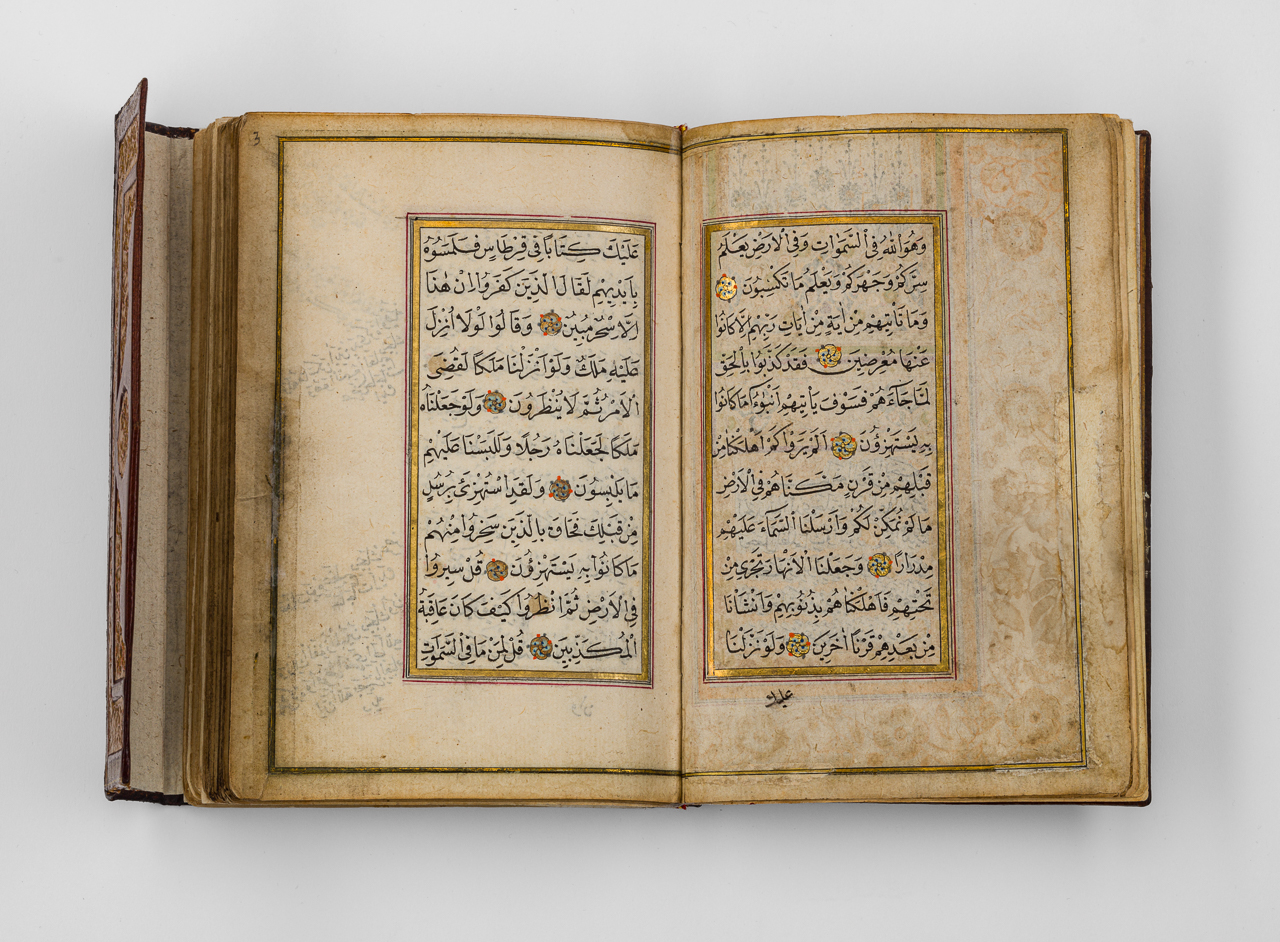 وَهُوَ اللّٰهُ فِي السَّمٰوَاتِ وَفِي الْاَرْضِ يَعْلَمُ
سِرَّكُمْ وَجَهْرَكُمْ وَيَعْلَمُ مَا تَكْسِبُونَ
وَمَا تَاْتِيهِمْ مِنْ اٰيَةٍ مِنْ اٰيَاتِ رَبِّهِمْ اِلَّا كَانُوا
عَنْهَا مُعْرِضِينَ فَقَدْ كَذَّبُوا بِالْحَقِّ
لَمَّا جَاءَهُمْ فَسَوْفَ يَاْتِيهِمْ اَنْبٰؤُا مَا كَانُوا
بِهِ يَسْتَهْزِؤُنَ اَلَمْ يَرَوْا كَمْ اَهْلَكْنَا مِنْ
قَبْلِهِمْ مِنْ قَرْنٍ مَكَّنَّاهُمْ فِي الْاَرْضِ
مَا لَمْ نُمَكِّنْ لَكُمْ وَاَرْسَلْنَا السَّمَاءَ عَلَيْهِمْ
مِدْرَارًا وَجَعَلْنَا الْاَنْهَارَ تَجْرِي مِنْ
تَحْتِهِمْ فَاَهْلَكْنَاهُمْ بِذُنُوبِهِمْ وَاَنْشَاْنَا
مِنْ بَعْدِهِمْ قَرْنًا اٰخَرِينَ وَلَوْ نَزَّلْنَا
عليك
3
عَلَيْكَ كِتَابًا فِي قِرْطَاسٍ فَلَمَسُوهُ
بِاَيْدِيهِمْ لَقَالَ الَّذِينَ كَفَرُوا اِنْ هٰذَا
اِلَّا سِحْرٌ مُبِينٌ وَقَالُوا لَوْلَا اُنْزِلَ
عَلَيْهِ مَلَكٌ وَلَوْ اَنْزَلْنَا مَلَكًا لَقُضِيَ
الْاَمْرُ ثُمَّ لَا يُنْظَرُونَ وَلَوْ جَعَلْنَاهُ
مَلَكًا لَجَعَلْنَاهُ رَجُلًا وَلَلَبَسْنَا عَلَيْهِمْ
مَا يَلْبِسُونَ وَلَقَدِ اسْتُهْزِئَ بِرُسُلٍ
مِنْ قَبْلِكَ فَحَاقَ بِالَّذِينَ سَخِرُوا مِنْهُمْ
مَا كَانُوا بِهِ يَسْتَهْزِؤُنَ قُلْ سِيرُوا
فِي الْاَرْضِ ثُمَّ انْظُرُوا كَيْفَ كَانَ عَاقِبَةُ
الْمُكَذِّبِينَ قُلْ لِمَنْ مَا فِي السَّمٰوَاتِ